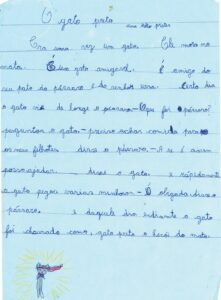 O gato preto
Era uma vez um gato. Ele mora no
mato. É um gato amigavel. É amigo do
seu pato do pássaro e do urso. Certo dia
o gato viu de longe o pássaro - Que foi pássaro?
perguntou o gato - preciso achar comida para
os meus filhotes disse o pássaro - A se é assim
posso ajudar. disse o gato e rapidamente
o gato pegou varias minhocas - obrigado disse o
pássaro. e daquele dia em diante o gato
foi chamado como, gato preto o heroi do mato.